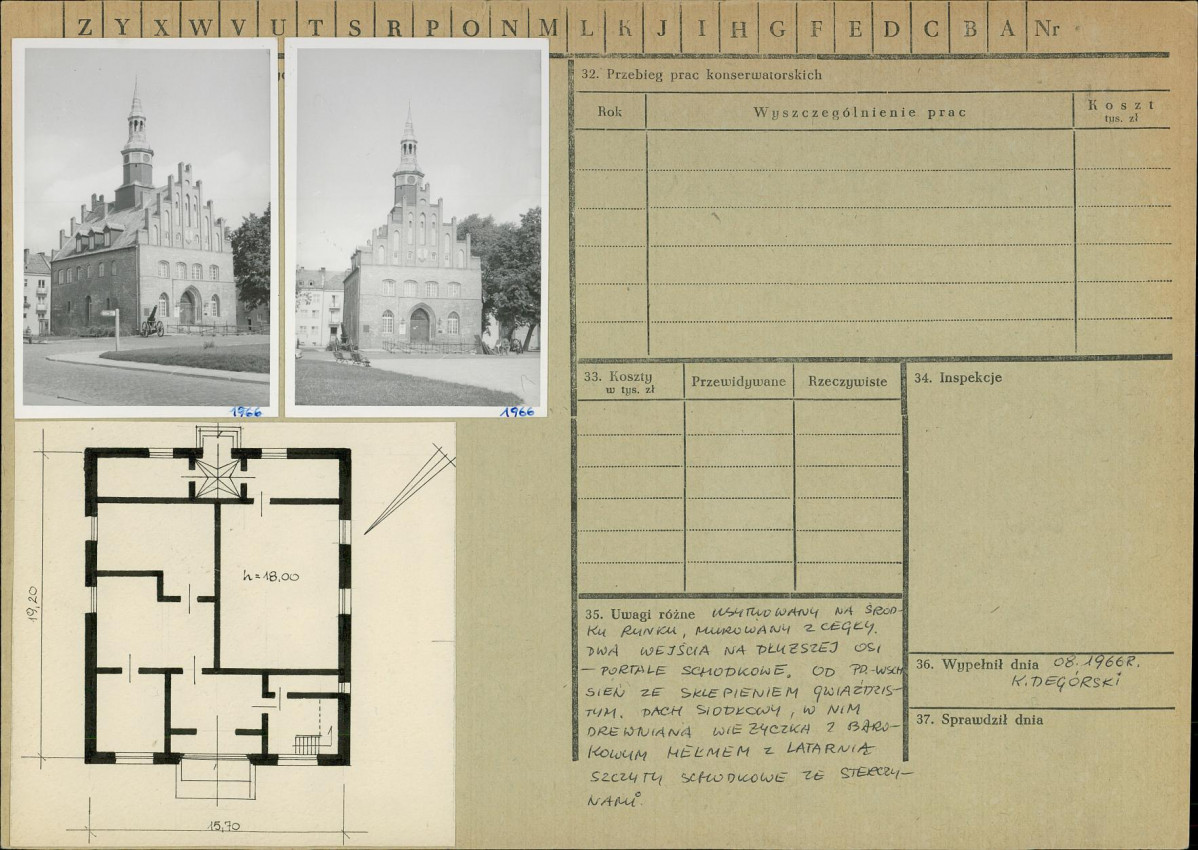 Z Y X W V U T S R P O N M L K J I H G F E D C B A Nr
32. Przebieg prac konserwatorskich
Rok
Wyszczególnienie prac
Koszt
tys. zł
1966
1966
33. Koszty
w tys. zł
Przewidywane
Rzeczywiste
34. Inspekcje
h=18,00
19,20
15,70
35. Uwagi różne USYTUOWANY NA ŚROD-
KU RYNKU, MUROWANY Z CEGŁY.
DWA WEJŚCIA NA DŁUŻSZEJ OSI
– PORTALE SCHODKOWE. OD PD.-WSCH
SIEŃ ZE SKLEPIENIEM GWIAŹDZIS-
TYM. DACH SIODŁOWY, W NIM
DREWNIANA WIEŻYCZKA Z BARO-
KOWYM HEŁMEM Z LATARNIĄ
SZCZYTY SCHODKOWE ZE STERCZY-
NAMI.
36. Wypełnił dnia 08.1966R.
K. DEGÓRSKI
37. Sprawdził dnia